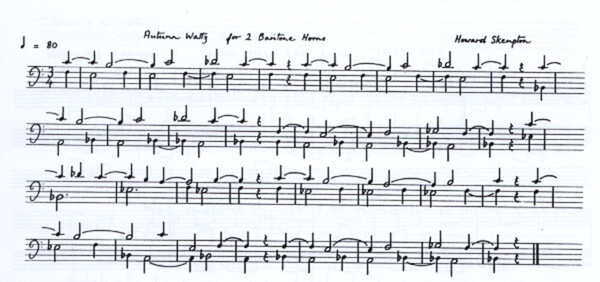 ♩ = 80 Autumn Waltz for 2 Baritone Horns Howard Skempton
3
4